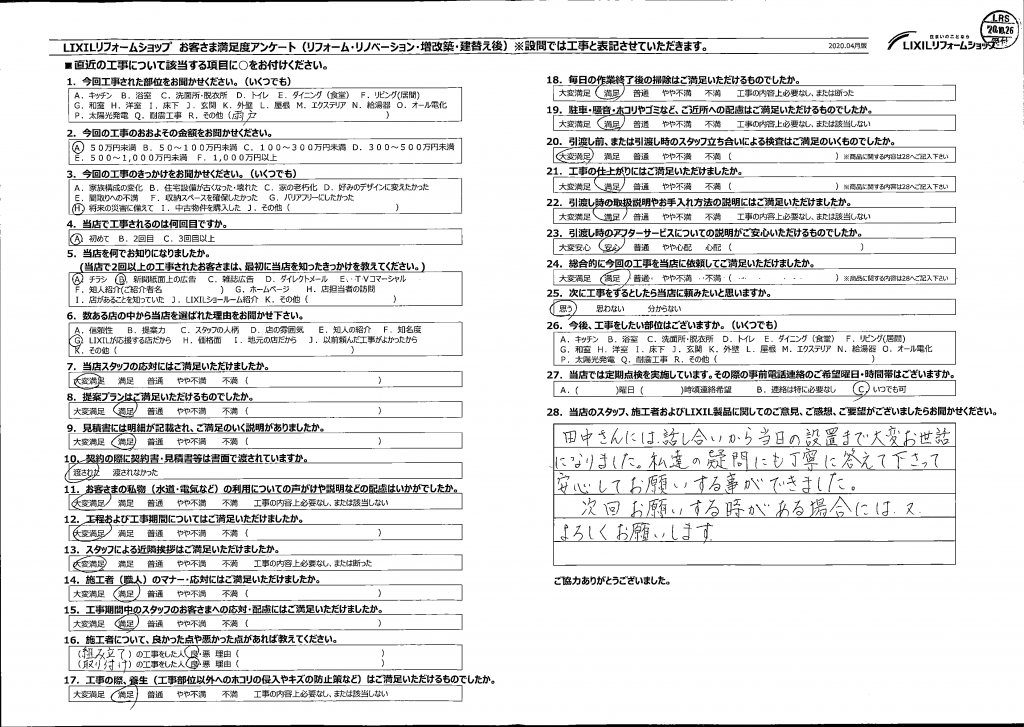 LIXILリフォームショップ お客さま満足度アンケート（リフォーム・リノベーション・増改築・建替え後）※設問では工事と表記させていただきます。
2020.04月版
住まいのことなら
LIXILリフォームショップ
LRS
受付
■直近の工事について該当する項目に○をお付けください。
1．今回工事された部位をお聞かせください。（いくつでも）
A．キッチン B．浴室 C．洗面所・脱衣所 D．トイレ E．ダイニング（食堂） F．リビング(居間)
G．和室 H．洋室 I．床下 J．玄関 K．外壁 L．屋根 M．エクステリア N．給湯器 O．オール電化
P．太陽光発電 Q．耐震工事 R．その他（雨戸 ）
2．今回の工事のおおよその金額をお聞かせください。
A．50万円未満 B．50～100万円未満 C．100～300万円未満 D．300～500万円未満
E．500～1,000万円未満 F．1,000万円以上
3．今回の工事のきっかけをお聞かせください。（いくつでも）
A．家族構成の変化 B．住宅設備が古くなった・壊れた C．家の老朽化 D．好みのデザインに変えたかった
E．間取りへの不満 F．収納スペースを確保したかった G．バリアフリーにしたかった
H．将来の災害に備えて I．中古物件を購入した J．その他（ ）
4．当店で工事されるのは何回目ですか。
A．初めて B．2回目 C．3回目以上
5．当店を何でお知りになりましたか。
（当店で2回以上の工事されたお客さまは、最初に当店を知ったきっかけを教えてください。）
A．チラシ B．新聞紙面上の広告 C．雑誌広告 D．ダイレクトメール E．TVコマーシャル
F．知人紹介(ご紹介者名 ) G．ホームページ H．店担当者の訪問
I．店があることを知っていた J．LIXILショールーム紹介 K．その他（ ）
6．数ある店の中から当店を選ばれた理由をお聞かせ下さい。
A．信頼性 B．提案力 C．スタッフの人柄 D．店の雰囲気 E．知人の紹介 F．知名度
G．LIXILが応援する店だから H．価格面 I．地元の店だから J．以前頼んだ工事がよかったから
K．その他（ ）
7．当店スタッフの応対にはご満足いただけましたか。
大変満足 満足 普通 やや不満 不満（ ）
8．提案プランはご満足いただけるものでしたか。
大変満足 満足 普通 やや不満 不満（ ）
9．見積書には明細が記載され、ご満足のいく説明がありましたか。
大変満足 満足 普通 やや不満 不満（ ）
10．契約の際に契約書・見積書等は書面で渡されていますか。
渡された 渡されなかった
11．お客さまの私物（水道・電気など）の利用についての声がけや説明などの配慮はいかがでしたか。
大変満足 満足 普通 やや不満 不満 工事の内容上必要なし、または該当しない
12．工程および工事期間についてはご満足いただけましたか。
大変満足 満足 普通 やや不満 不満（ ）
13．スタッフによる近隣挨拶はご満足いただけましたか。
大変満足 満足 普通 やや不満 不満 工事の内容上必要なし、または断った
14．施工者（職人）のマナー・応対にはご満足いただけましたか。
大変満足 満足 普通 やや不満 不満（ ）
15．工事期間中のスタッフのお客さまへの応対・配慮にはご満足いただけましたか。
大変満足 満足 普通 やや不満 不満（ ）
16．施工者について、良かった点や悪かった点があれば教えてください。
（組み立て）の工事をした人 良・悪 理由（ ）
（取り付け）の工事をした人 良・悪 理由（ ）
17．工事の際、養生（工事部位以外へのホコリの侵入やキズの防止策など）はご満足いただけるものでしたか。
大変満足 満足 普通 やや不満 不満 工事の内容上必要なし、または該当しない
18．毎日の作業終了後の掃除はご満足いただけるものでしたか。
大変満足 満足 普通 やや不満 不満 工事の内容上必要なし、または断った
19．駐車・騒音・ホコリやゴミなど、ご近所への配慮はご満足いただけるものでしたか。
大変満足 満足 普通 やや不満 不満 工事の内容上必要なし、または該当しない
20．引渡し前、または引渡し時のスタッフ立ち合いによる検査はご満足のいくものでしたか。
大変満足 満足 普通 やや不満 不満（ ）※商品に関する内容は28へご記入下さい
21．工事の仕上がりにはご満足いただけましたか。
大変満足 満足 普通 やや不満 不満（ ）※商品に関する内容は28へご記入下さい
22．引渡し時の取扱説明やお手入れ方法の説明にはご満足いただけましたか。
大変満足 満足 普通 やや不満 不満 工事の内容上必要なし、または該当しない
23．引渡し時のアフターサービスについての説明がご安心いただけるものでしたか。
大変安心 安心 普通 やや心配 心配（ ）
24．総合的に今回の工事を当店に依頼してご満足いただけましたか。
大変満足 満足 普通 やや不満 不満（ ）※商品に関する内容は28へご記入下さい
25．次に工事をするとしたら当店に頼みたいと思いますか。
思う 思わない 分からない
26．今後、工事をしたい部位はございますか。（いくつでも）
A．キッチン B．浴室 C．洗面所・脱衣所 D．トイレ E．ダイニング（食堂） F．リビング(居間)
G．和室 H．洋室 I．床下 J．玄関 K．外壁 L．屋根 M．エクステリア N．給湯器 O．オール電化
P．太陽光発電 Q．耐震工事 R．その他（ ）
27．当店では定期点検を実施しています。その際の事前電話連絡のご希望曜日・時間帯はございますか。
A．（ ）曜日（ ）時頃連絡希望 B．連絡は特に必要なし C．いつでも可
28．当店のスタッフ、施工者およびLIXIL製品に関してのご意見、ご感想、ご要望がございましたらお聞かせください。
田中さんには、話し合いから当日の設置まで大変お世話
になりました。私達の疑問にも丁寧に答えて下さって
安心してお願いする事ができました。
次回お願いする時がある場合には、又
よろしくお願いします
ご協力ありがとうございました。